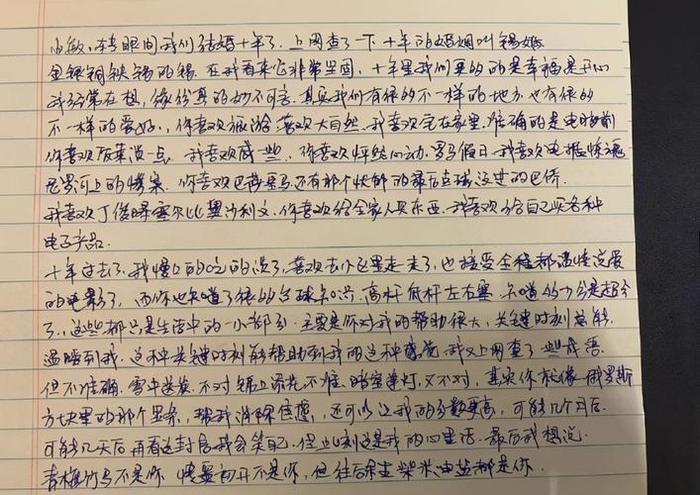 小敏，转眼间我们结婚十年了，上网查了一下十年的婚姻叫锡婚
金银铜铁锡的锡，在我看来它非常坚固，十年里我们更多的是幸福是开心
我经常在想，缘份真的妙不可言，其实我们有很多不一样的地方也有很多
不一样的爱好，你喜欢旅游，喜欢大自然，我喜欢宅在家里，准确的是电脑前
你喜欢饭菜淡一点，我喜欢咸一些，你喜欢怦然心动，罗马假日，我喜欢电梯惊魂
尼罗河上的惨案，你喜欢巴蒂罗马，还有那个忧郁的最后点球没过的巴乔
我喜欢丁俊晖塞尔比奥沙利文，你喜欢给全家人买东西，我喜欢给自己买各种
电子产品
十年过去了，我慢慢的吃的淡了，喜欢去公园里走走了，也接受全程都温情浪漫
的电影了，而你也知道了很多台球知识，高杆低杆左右塞，知道的
了，这些都只是生活中的一小部分，主要是你对我的帮助很大，关键时刻总能
温暖到我，这种关键时刻能帮助到我的这种感觉，我又上网查了些成语
但不准确，雪中送炭，不对，锦上添花不准，暗室逢灯，又不对，其实你就像俄罗斯
方块里的那个竖条，帮我消除焦虑，还可以让我的分数更高，可能几个月后
可能几天后再看这封信我会笑自己，但此时刻这是我的心里话，最后我想说
青梅竹马不是你，情窦初开不是你，但往后余生柴米油盐都是你．